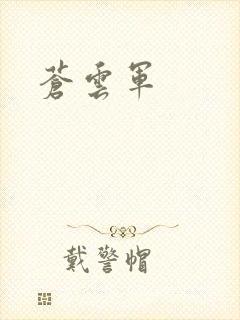 蒼雲軍
戴警帽